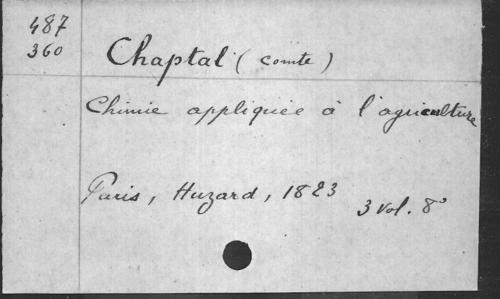 487
360
Chaptal (comte)
Chimie appliquée à l'agriculture
Paris, Huzard, 1823
3 vol. 8°